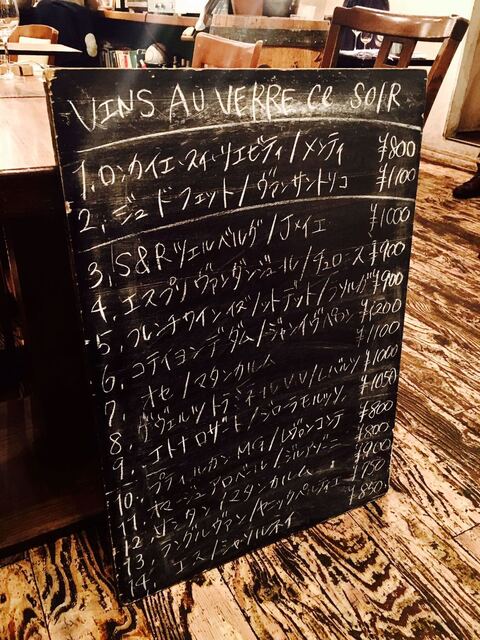 VINS AU VERRE Ce SOIR
1. ロンカイエ・スイ・リエビティ/メンティ ¥800
2. ジュ ド フェット/ヴァンサントリコ ¥1100
3. S&R ツェルベルグ/Jメイエ ¥1000
4. エスプリ ヴァンダンジュール/チュロース ¥900
5. フレンチワインイズノットデット/ラソルガ ¥900
6. コティヨンデダム/ジャンイヴペロン ¥1200
7. オセ/マタンカルム ¥1100
8. ゲヴェルツトラミネール V.V/レベルツ ¥1000
9. エトナロザート/ジローラモルッソ ¥1050
10. プティルカン MG/レグランコンテ ¥800
11. セージュアロベール/ ¥800
12. マタンカルム ¥900
13. ラングルヴァン/ヤニックペルティエ ¥750
14. エス/シャソルネイ ¥850